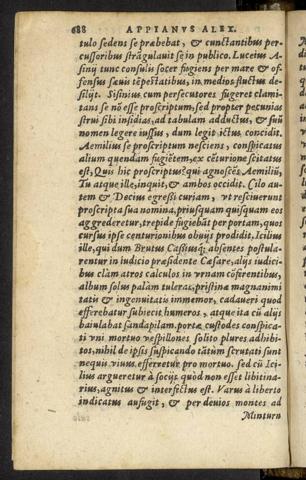 688 APPIANVS ALEX.
tulo sedens se præbebat, & cunctantibus per-
cussoribus strãgulauit se in publico. Luceius A-
sinij tunc consulis socer fugiens per mare & of-
fensus sæuis tẽpestatibus, in medios fluctus de-
silijt. Sisinius cum persecutores fugeret clami-
tans se nõ esse proscriptum, sed propter pecunias
strui sibi insidias, ad tabulam adductus, & suũ
nomen legere iussus, dum legit ictus concidit.
Aemilius se proscriptum nesciens, conspicatus
alium quendam fugiẽtem, ex cẽturione scitatus
est, Quis hic proscriptus? qui agnoscẽs Aemiliũ,
Tu atque ille, inquit, & ambos occidit. Cilo au-
tem & Decius egressi curiam, vt resciuerunt
proscripta sua nomina, priusquam quisquam eos
aggrederetur, trepide fugiebãt per portam, quos
cursus ipse centurionibus obuijs prodidit. Icilius
ille, qui dum Brutus Cassiusq; absentes postula-
rentur in iudicio præsidente Cæsare, alijs iudici-
bus clàm atros calculos in vrnam cõiicientibus,
album solus palàm tulerat, pristina magnanimi
tatis & ingenuitatis immemor, cadaueri quod
efferebatur subiecit humeros, atque ita cũ alijs
baiulabat sandapilam. portæ custodes conspica-
ti vni mortuo vespillones solito plures adhibi-
tos, nihil de ipsis suspicando tãtum scrutati sunt
nequis viuus efferretur pro mortuo. sed cũ Ici-
lius argueretur à socijs quòd non esset libitina-
rius, agnitus & interfectus est. Varus à liberto
indicatus aufugit, & per deuios montes ad
Minturn